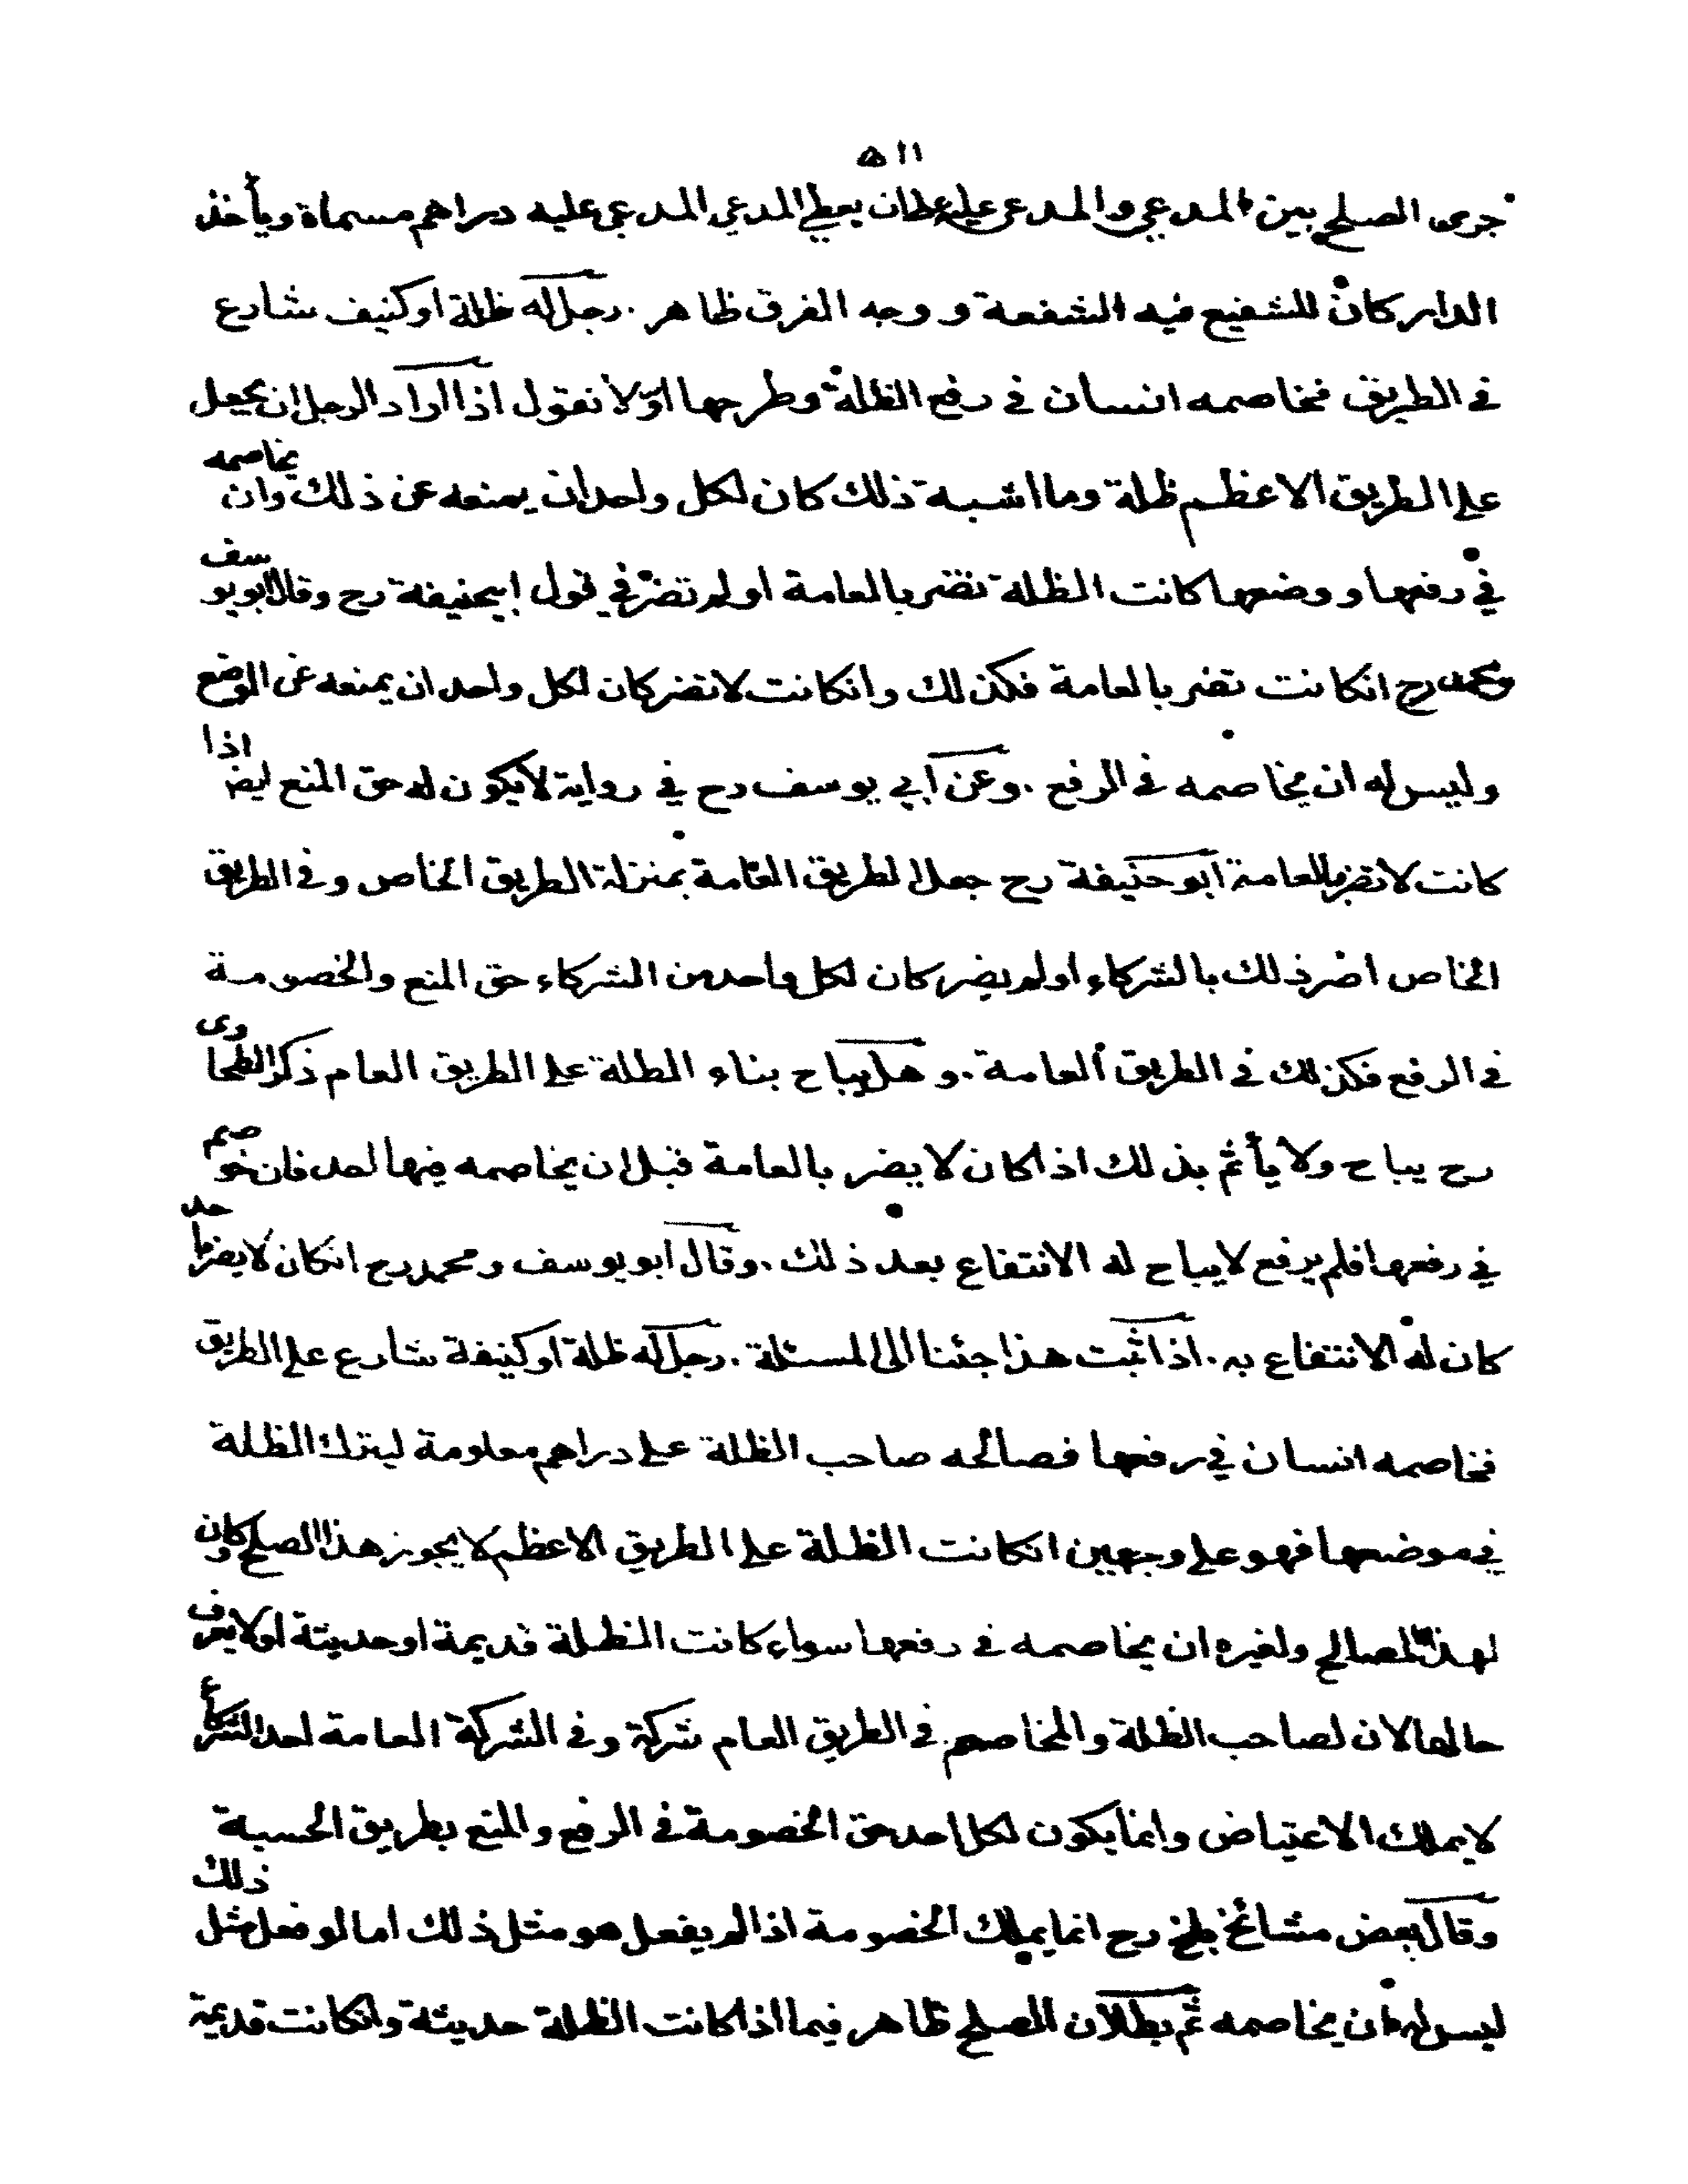 ٥١١
جرى الصلح بين المدعي والمدعى عليه على ان يعطي المدعي المدعى عليه دراهم مسماة ويأخذ
الدار كان للشفيع فيه الشفعة ووجه الفرق ظاهر . رجل له ظلة او كنيف شارع
في الطريق فخاصمه انسان في رفع الظلة وطرحها اولا نقول اذا اراد الرجل ان يجعل
على الطريق الاعظم ظلة وما اشبه ذلك كان لكل واحد ان يمنعه عن ذلك وان يخاصمه
في رفعها ووضعها كانت الظلة تضر بالعامة او لم تضر في قول ابيحنيفة رح وقال ابويوسف
ومحمد رح انكانت تضر بالعامة فكذلك وانكانت لا تضر كان لكل واحد ان يمنعه عن الوضع
وليس له ان يخاصمه في الرفع . وعن ابي يوسف رح في رواية لا يكون له حق المنع ايض اذا
كانت لا تضر بالعامة ابو حنيفة رح جعل الطريق العامة بمنزلة الطريق الخاص وفي الطريق
الخاص اضر ذلك بالشركاء او لم يضر كان لكل واحد من الشركاء حق المنع والخصومة
في الرفع فكذلك في الطريق العامة . وهل يباح بناء الطلة على الطريق العام ذكر الطحاوى
رح يباح ولا يأثم بذلك اذا كان لا يضر بالعامة قبل ان يخاصمه فيها احد فان خوصم
في رفعها فلم يرفع لا يباح له الانتفاع بعد ذلك . وقال ابو يوسف ومحمد رح انكان لا يضر باحد
كان له الانتفاع به . اذا ثبت هذا جئنا الى المسئلة . رجل له ظلة او كنيفة شارع على الطريق
فخاصمه انسان في رفعها فصالحه صاحب الظلة على دراهم معلومة ليترك الظلة
في موضعها فهو على وجهين انكانت الظلة على الطريق الاعظم لا يجوز هذا الصلح وكان
لهذا المصالح ولغيره ان يخاصمه في رفعها سواء كانت الظلة قديمة او حديثة او لا يعرف
حالها لان لصاحب الظلة والمخاصم في الطريق العام شركة وفي الشركة العامة احد الشركاء
لا يملك الاعتياض وانما يكون لكل احد حق الخصومة في الرفع والمنع بطريق الحسبة
وقال بعض مشائخ بلخ رح انما يملك الخصومة اذا لم يفعل هو مثل ذلك اما لو فعل مثل ذلك
ليس له ان يخاصمه ثم بطلان الصلح ظاهر فيما اذا كانت الظلة حديثة وانكانت قديمة